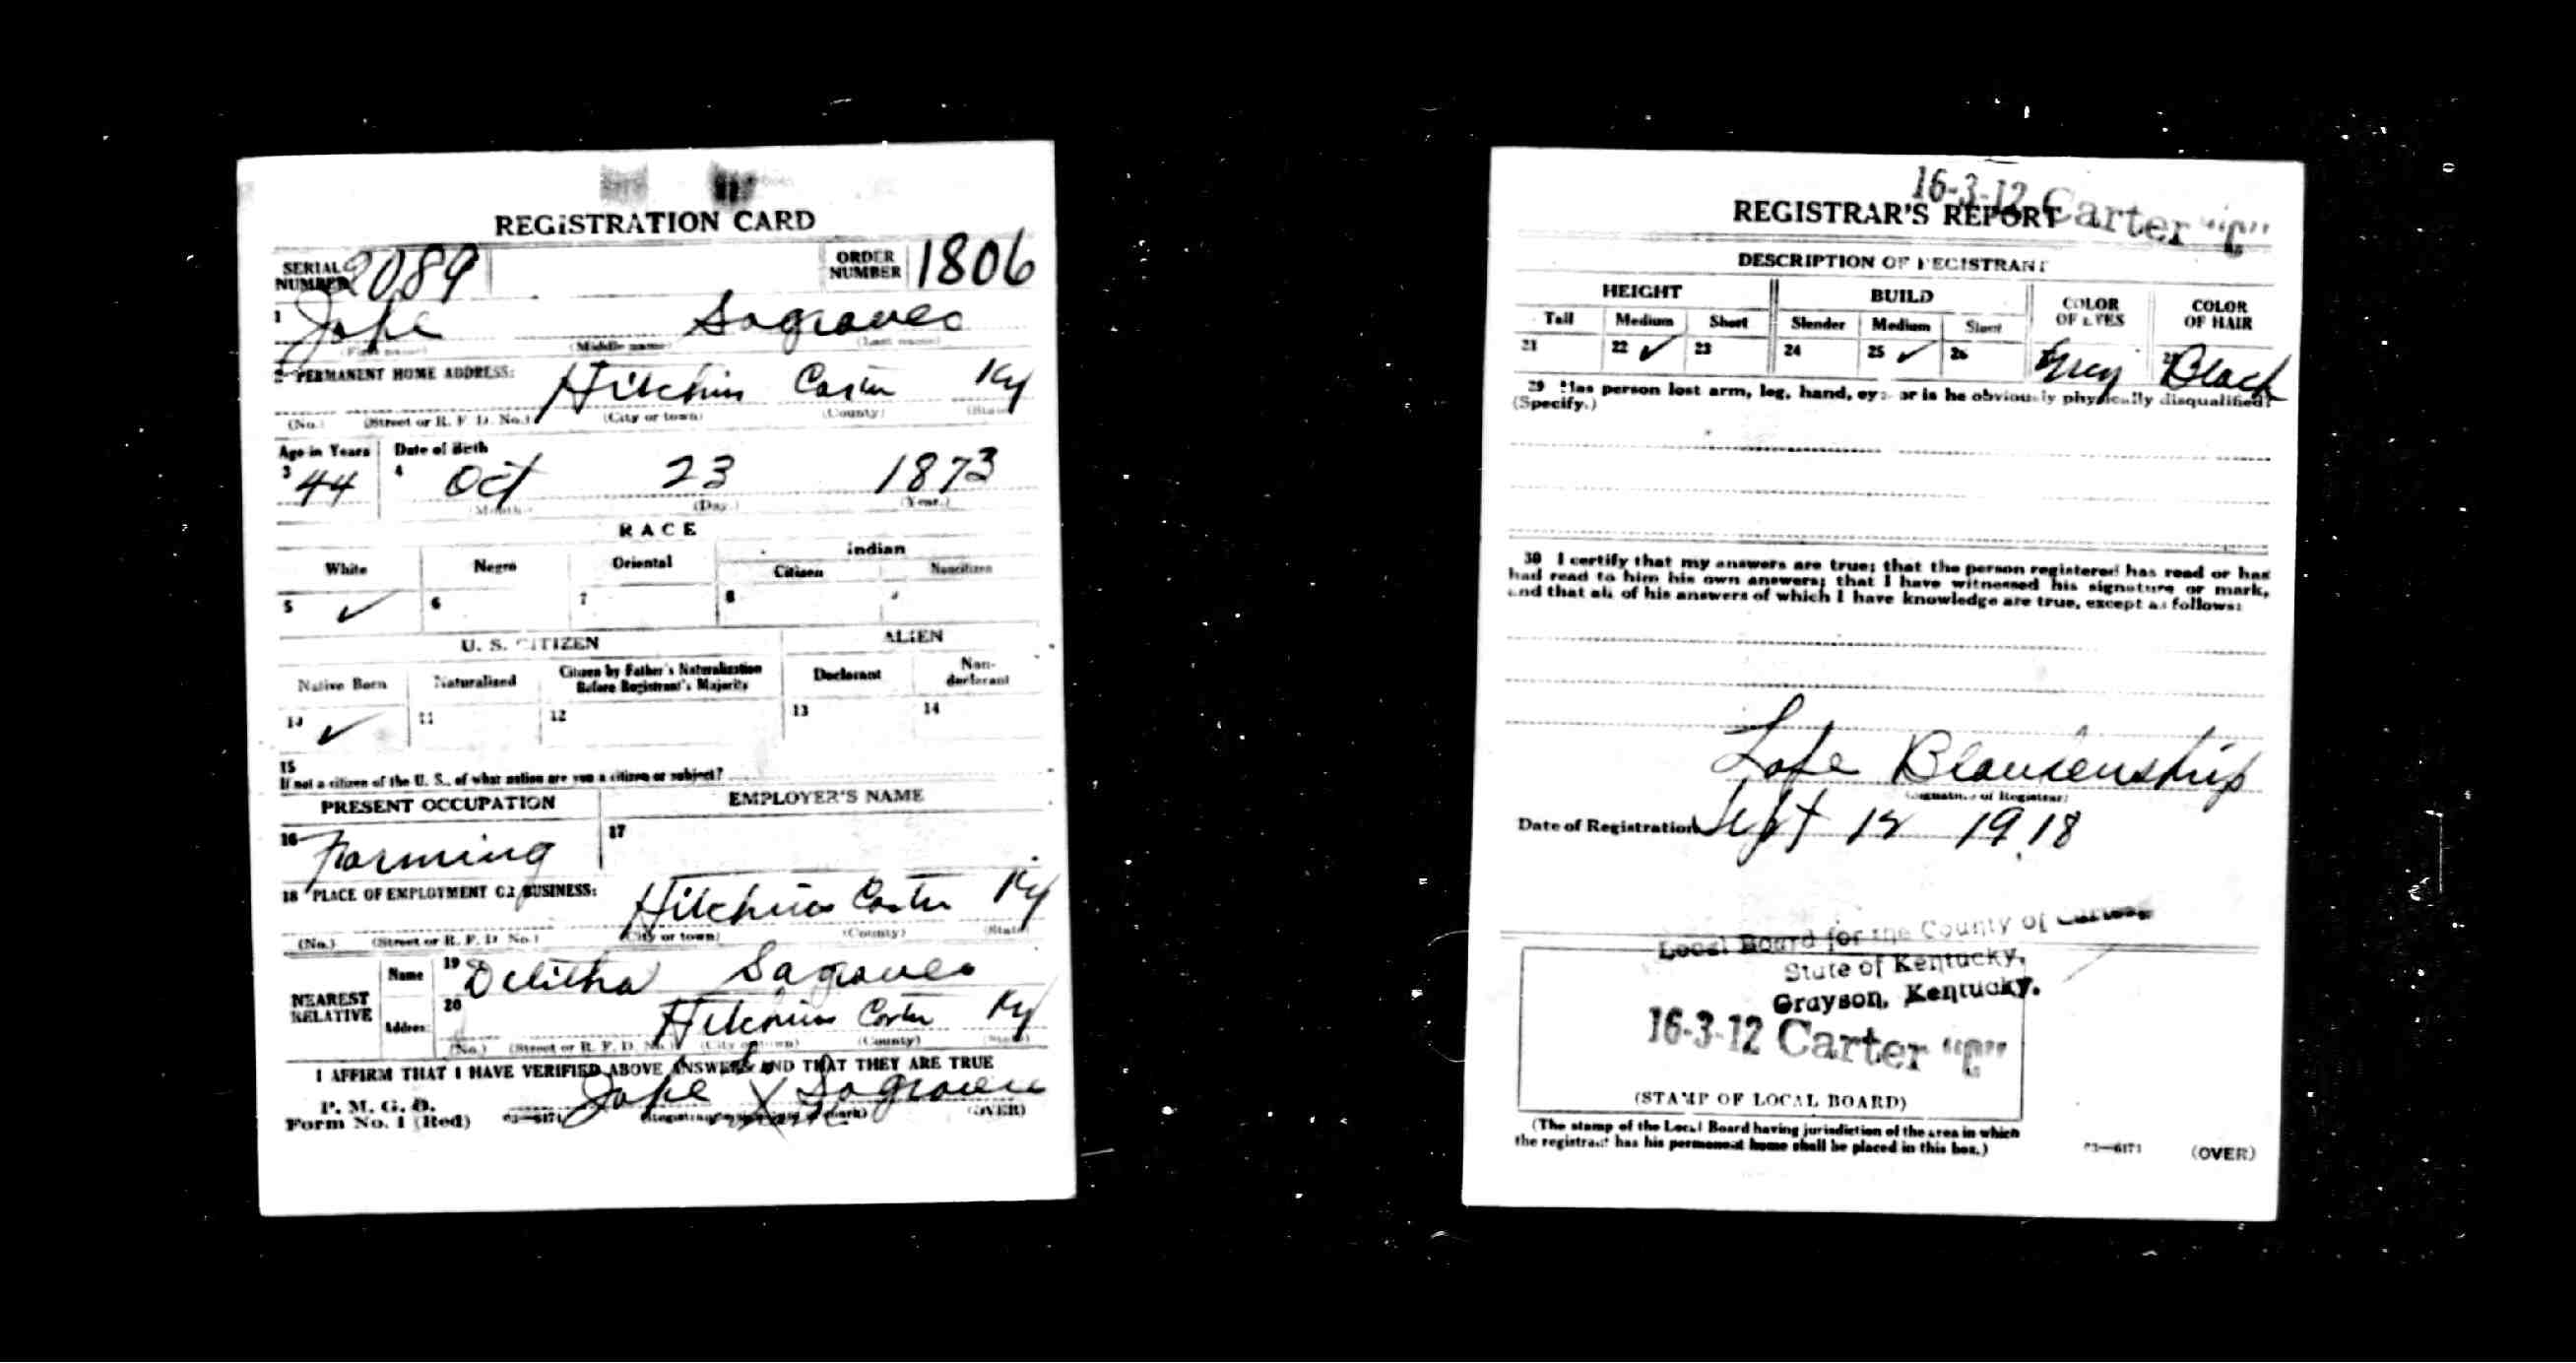 REGISTRATION CARD
SERIAL NUMBER 2089 ORDER NUMBER 1806
1 Jake Sagraves
(First name) (Middle name) (Last name)
2 PERMANENT HOME ADDRESS: Hitchins Carter Ky
(No.) (Street or R. F. D. No.) (City or town) (County) (State)
Age in Years Date of Birth
3 44 4 Oct 23 1873
(Month.) (Day.) (Year.)
RACE
White Negro Oriental Indian
Citizen Noncitizen
5 ✓ 6 7 8
U. S. CITIZEN ALIEN
Native Born Naturalized Citizen by Father's Naturalization Before Registrant's Majority Declarant Non-declarant
10 ✓ 11 12 13 14
15
If not a citizen of the U. S., of what nation are you a citizen or subject?
PRESENT OCCUPATION EMPLOYER'S NAME
16 Farming 17
18 PLACE OF EMPLOYMENT OR BUSINESS: Hitchins Carter Ky
(No.) (Street or R. F. D. No.) (City or town) (County) (State)
NEAREST RELATIVE Name 19 Delitha Sagraves
Address 20 Hitchins Carter Ky
(No.) (Street or R. F. D. No.) (City or town) (County) (State)
I AFFIRM THAT I HAVE VERIFIED ABOVE ANSWERS AND THAT THEY ARE TRUE
P. M. G. O.
Form No. 1 (Red) 03—6171 Jake his X mark Sagraves (OVER)
16-3-12 Carter "C"
REGISTRAR'S REPORT
DESCRIPTION OF REGISTRANT
HEIGHT BUILD COLOR OF EYES COLOR OF HAIR
Tall Medium Short Slender Medium Stout
21 22 ✓ 23 24 25 ✓ 26 Grey Black
29 Has person lost arm, leg, hand, eye, or is he obviously physically disqualified?
(Specify.)
30 I certify that my answers are true; that the person registered has read or has
had read to him his own answers; that I have witnessed his signature or mark,
and that all of his answers of which I have knowledge are true, except as follows:
Lafe Blankenship
(Signature of Registrar)
Date of Registration Sept 12 1918
Local Board for the County of Carter
State of Kentucky,
Grayson, Kentucky.
16-3-12 Carter "C"
(STAMP OF LOCAL BOARD)
(The stamp of the Local Board having jurisdiction of the area in which
the registrant has his permanent home shall be placed in this box.)
03—6171 (OVER)